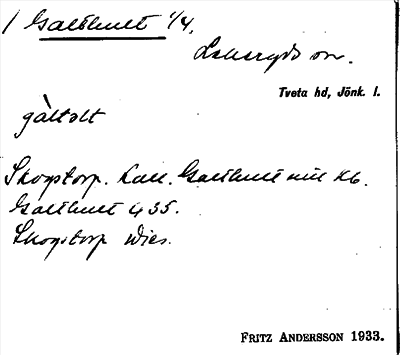 1 Galthult 1/4.
Lekeryds sn.
Tveta hd, Jönk. l.
gàltəlt
Skogstorp. kall. Galthult
Galthult 435.
Skogstorp
FRITZ ANDERSSON 1933.